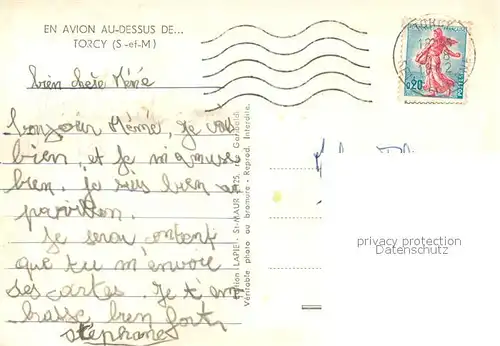 EN AVION AU-DESSUS DE...
TORCY (S-et-M)
bien chère Mémé
bonjour Mémé, je vais
bien, et je m'amuse
bien. je suis bien au
pavillon.
Je serai content
que tu m'envoie
des cartes. Je t'em
brasse bien fort,
stephane
LAPIE ST-MAUR
Véritable photo au bromure - Reprod. Interdite.
0,20
privacy protection
Datenschutz